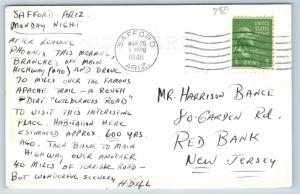 SAFFORD ARIZ.
MONDAY NIGHT
AFTER LEAVING
PHOENIX THIS MORNING
BRANCHED OFF MAIN
HIGHWAY (#70) AND DROVE
70 MILES OVER THE FAMOUS
APACHE TRAIL - A ROUGH
"DIRT" WILDERNESS ROAD"
TO VISIT THIS INTERESTING
PLACE. HABITATION HERE
ESTIMATED APPROX. 600 YRS.
AGO. THEN BACK TO MAIN
HIGHWAY OVER ANOTHER
40 MILES OF TERRIBLE ROAD -
BUT WONDERFUL SCENERY
SAFFORD
MAR 26
1946
ARIZ.
750
1 CENT 1
MR. HARRISON BANCE
80-GARDEN RD.
RED BANK
NEW JERSEY